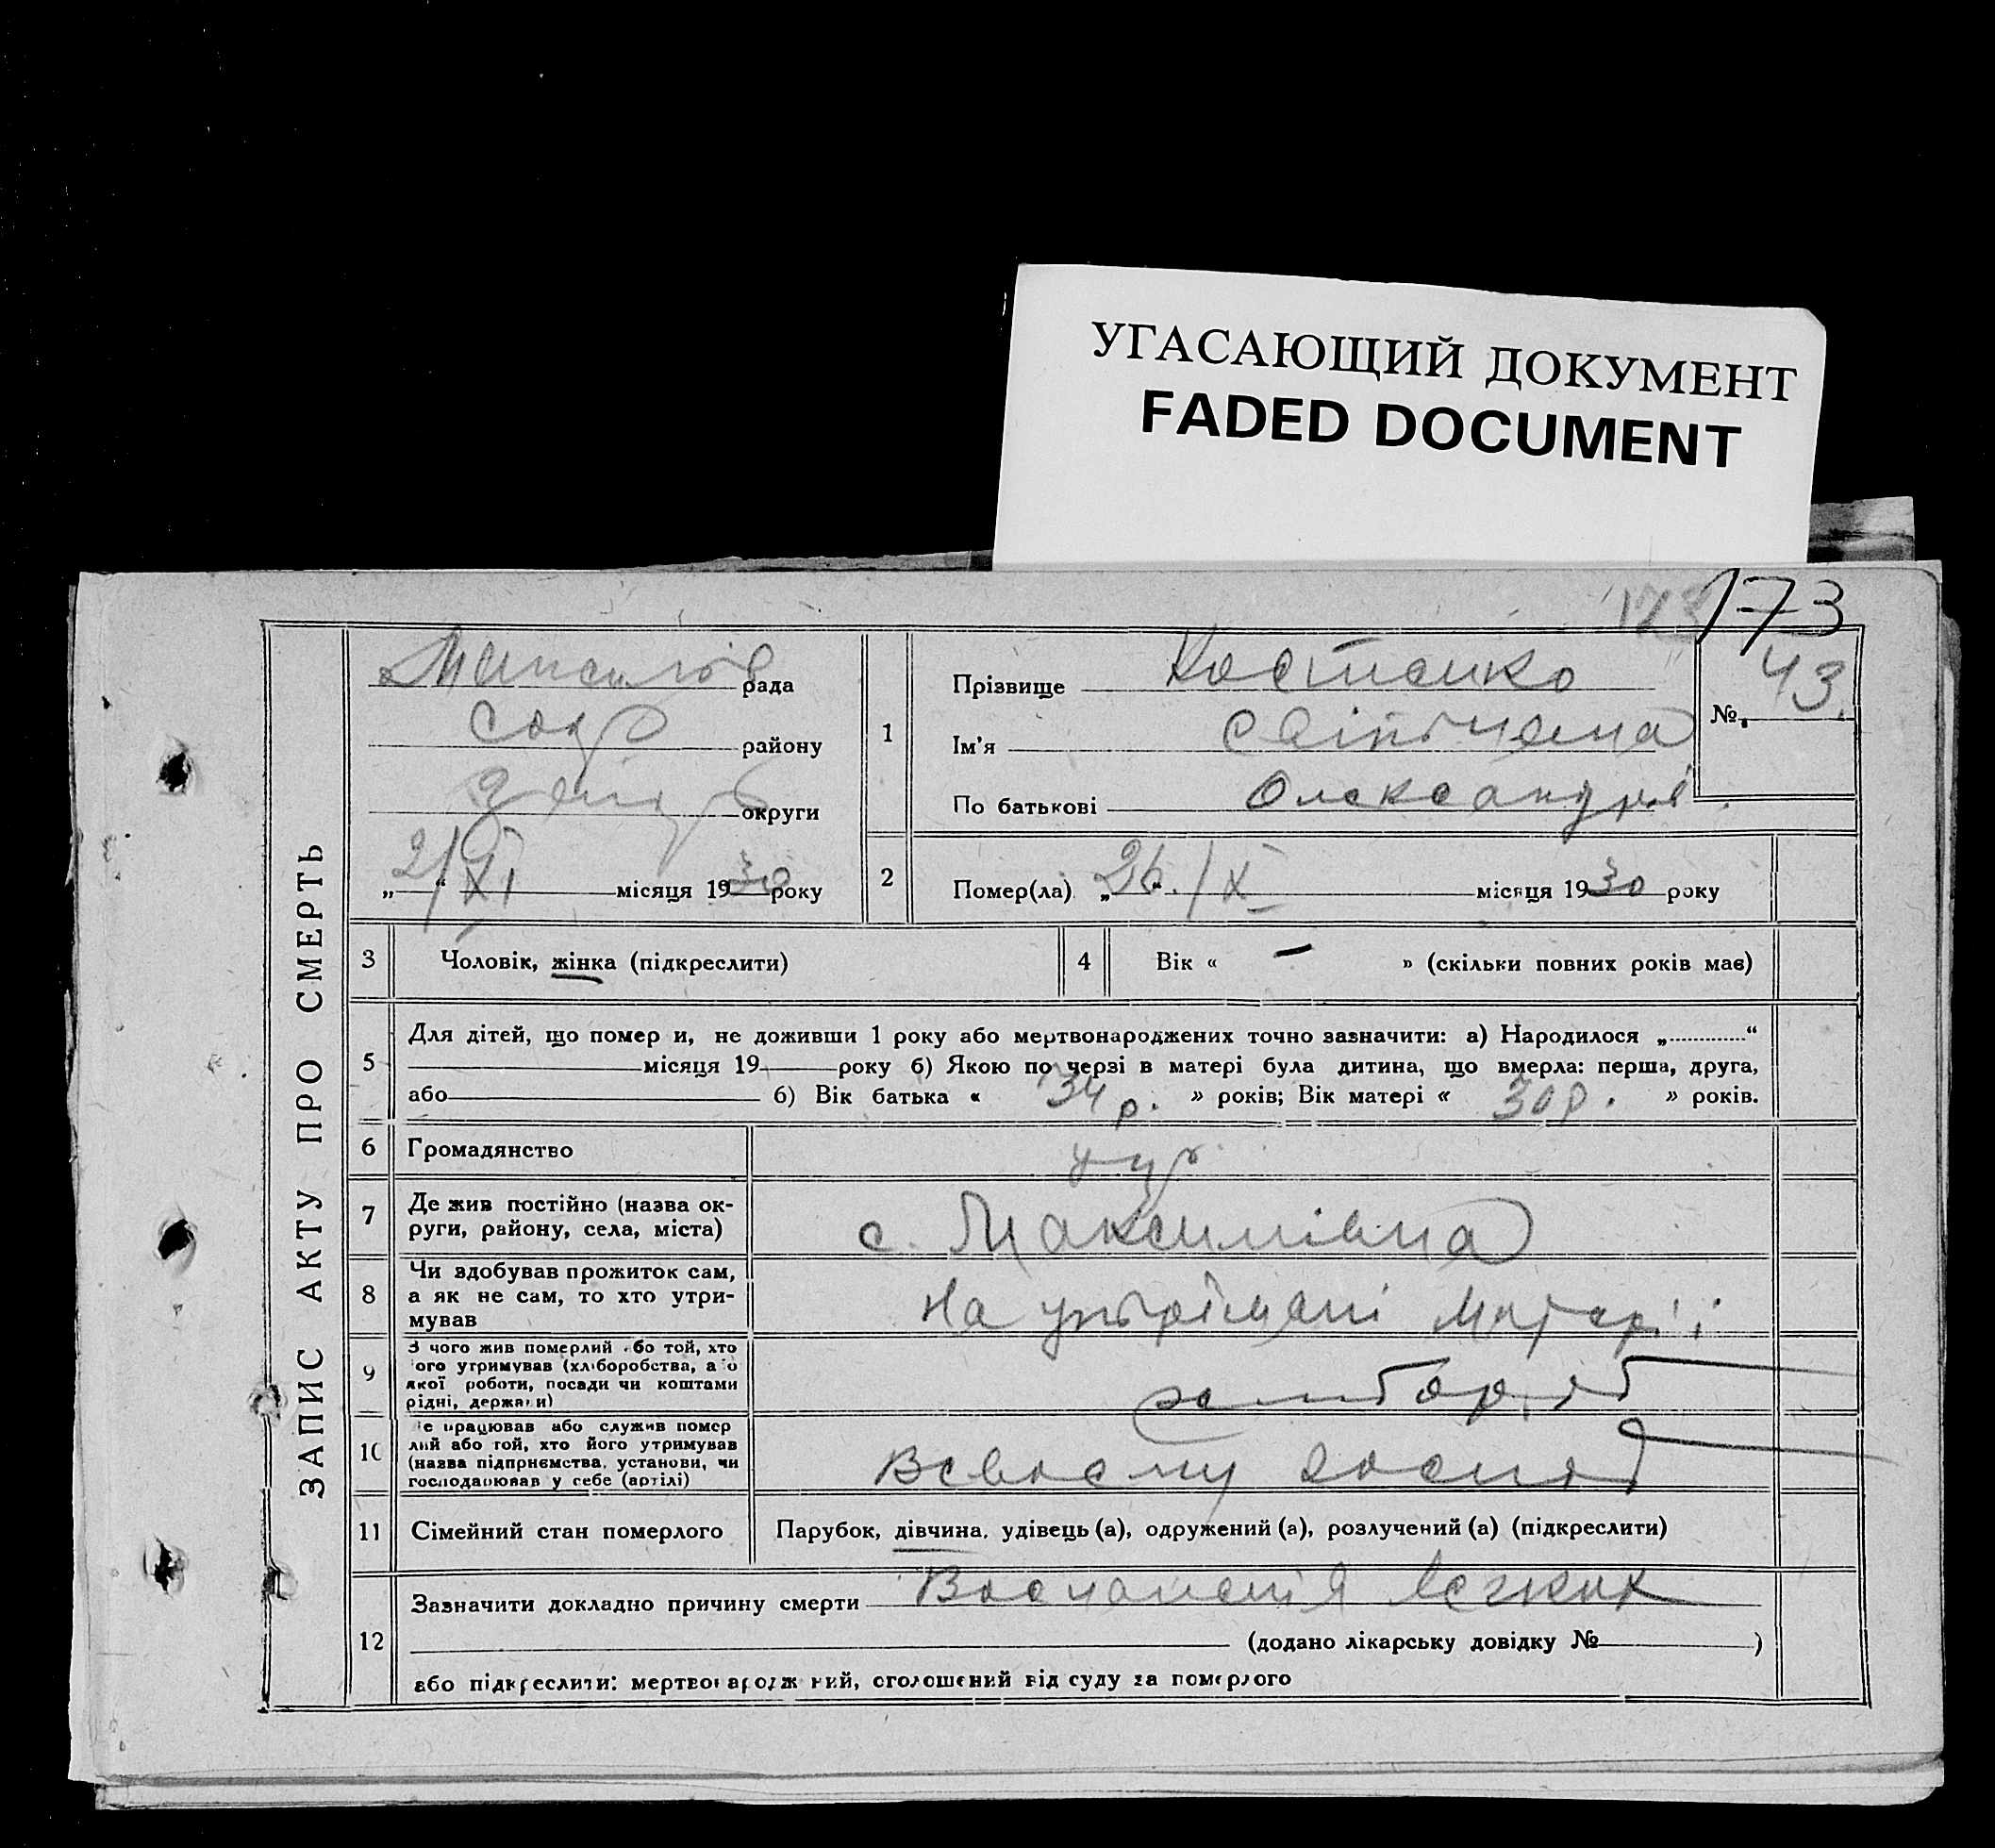 УГАСАЮЩИЙ ДОКУМЕНТ
FADED DOCUMENT
173
ЗАПИС АКТУ ПРО СМЕРТЬ
рада
району
округи
„2/“ XI місяця 1930 року
1
Прізвище Костенко
Ім’я
По батькові Олександрів
№ 43
2
Помер(ла) „26.“ / X місяця 1930 року
3
Чоловік, жінка (підкреслити)
4
Вік « – » (скільки повних років має)
5
Для дітей, що помер и, не доживши 1 року або мертвонароджених точно зазначити: а) Народилося „.............“
місяця 19 року б) Якою по черзі в матері була дитина, що вмерла: перша, друга,
або б) Вік батька « 34 р. » років; Вік матері « 30 р. » років.
6
Громадянство
7
Де жив постійно (назва ок-
руги, району, села, міста)
с. Максимівка
8
Чи здобував прожиток сам,
а як не сам, то хто утри-
мував
на утрімані матері
9
З чого жив померлий або той, хто
його утримував (хліборобства, або
якої роботи, посади чи коштами
рідні, держави)
10
Де працював або служив помер
лий або той, хто його утримував
(назва підприємства, установи, чи
господарював у себе (артілі)
Всвоему
11
Сімейний стан померлого
Парубок, дівчина, удівець (а), одружений (а), розлучений (а) (підкреслити)
12
Зазначити докладно причину смерти легких
(додано лікарську довідку № )
або підкреслити: мертвонароджений, оголошений від суду за померлого